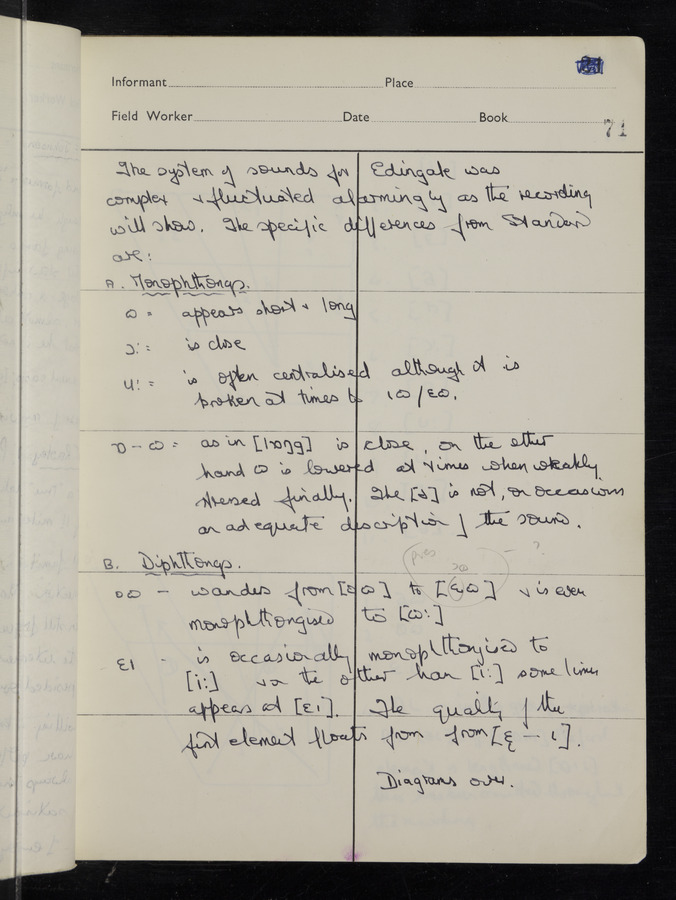 Informant Place
Field Worker Date Book
71
The system of sounds for Edingale was
complex & fluctuated alarmingly as the recording
will show. The specific differences from Standard
are:
A. Monophthongs.
ɷ = appears short & long
ɔ: = is close
u: = is often centralised although it is
broken at times to ıɷ/ɛɷ.
ɒ – ɷ = as in is close, on the other
hand ɷ is lowered at times when weakly
stressed finally. The is not, on occasions
an adequate description of the sound.
B. Diphthongs.
– wander from to & is even
monophthongised to [ɷ:]
ɛı – is occasionally monophthongised to
[i:] & on the other han [i:] sometimes
appears at [ɛı]. The quality of the
first element floats from from [ɛ̝ – ı].
Diagrams over.